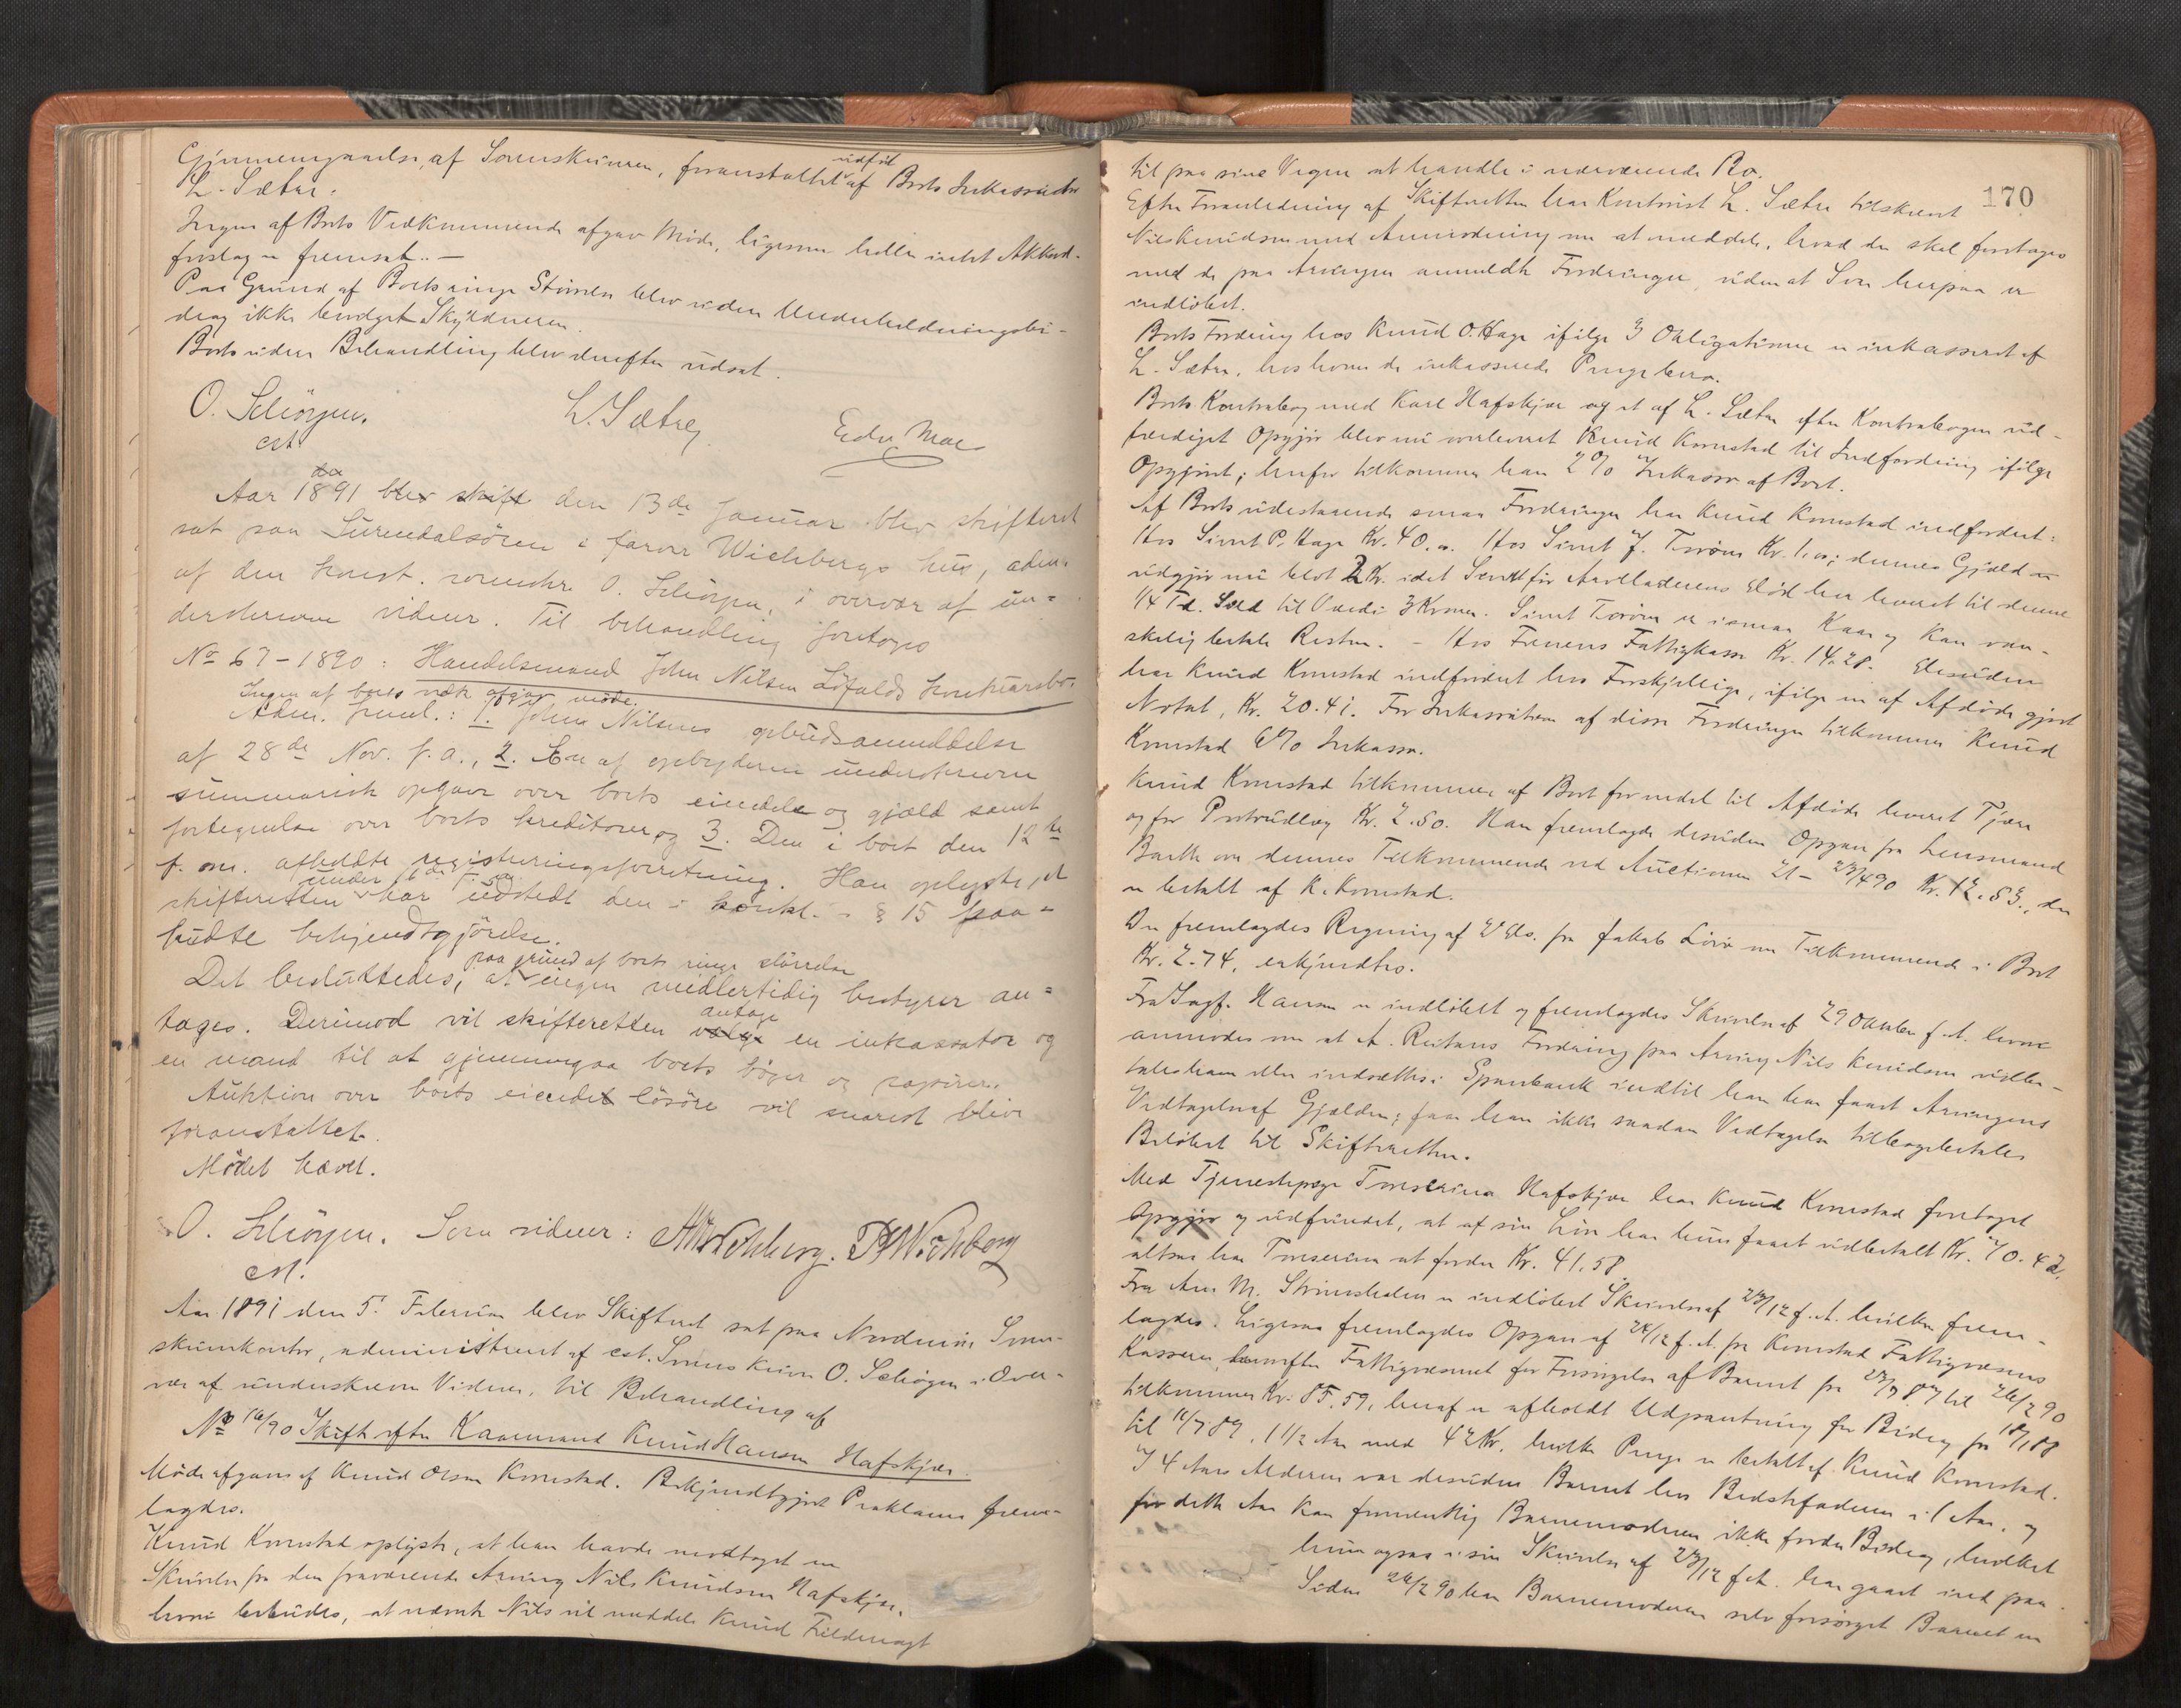 Gjennemgaaelse af Sorenskriveren, foranstaltet udført af Boets Inkassator
L. Sæter.
Ingen af Boets Vedkommende afgav Møde, ligesom heller intet Akkord-
forslag er fremsat. —
Paa Grund af Boets ringe Størrelse blev videre Underholdningsbi-
drag ikke bevilget Skyldneren.
Boets videre Behandling blev derefter udsat.
O. Schiørgen. L. Sætre Edv. Moe
cst.
Aar 1891 blev skift den 13de Januar blev skifteret
sat paa Surendalsøren i farver Wichbergs hus, adm.
af den konst. sorenskr. O. Schiørgen, i overvær af un-
derskrevne vidner. Til behandling foretoges
No 67-1890: Handelsmand John Nilsen Løfalds konkursbo.
Ingen af boets vedk. afgav møde.
Adm. freml.: 1. John Nilsens opbudsanmeldelse
af 28de Nov. f. a., 2. En af opbyderen underskreven
summarisk opgave over boets eiendele og gjæld samt
fortegnelse over boets kreditorer og 3. Den i boet den 12te
f. m. afholdte registreringsforretning. Han oplyste, at
skifteretten under 1de f. m. har udstedt den i konkl.s § 15 paa-
budte bekjendtgjørelse.
Det besluttedes, at paa grund af boets ringe størrelse ingen midlertidig bestyrer an-
tages. Derimod vil skifteretten vælge antage en inkassator og
en mand til at gjennemgaa boets bøger og papirer.
Auktion over boets eiendel løsøre vil snarest blive
foranstaltet.
Mødet hævet.
O. Schiørgen. Som vidner: Wichberg. Wichberg
cst.
Aar 1891 den 5. Februar blev Skifteret sat paa Nordmøre Soren-
skriverkontor, administreret af cst. Sorenskriver O. Schiørgen i Over-
vær af underskrevne Vidner, til Behandling af
No 16/90 Skifte efter Kaarmand Knud Hansen Hafskjær.
Møde afgaves af Knud Olsen Kornstad. Bekjendtgjort Proklama frem-
lagdes.
Knud Kornstad oplyste, at han havde modtaget en
Skrivelse fra den fraværende Arving Nils Knudsen Hafskjær,
hvori bebudes, at nævnte Nils vil meddele Knud Fuldmagt
170
til paa sine Vegne at handle i nærværende Bo.
Efter Foranledning af Skifteretten har Kontorist L. Sæter tilskrevet
Nils Knudsen med Anmodning om at meddele, hvad der skal foretages
med de paa Arvingen anmeldte Fordringer, uden at Svar herpaa er
indløbet.
Boets Fordring hos Knud O. Hage ifølge 3 Obligationer er inkasseret af
L. Sætre, hos hvem de inkasserede Penge bero.
Boets Kontrabog med Karl Hafskjær og et af L. Sæter efter Kontrabogen ud-
færdiget Opgjør blev nu overleveret Knud Kornstad til Indfordring ifølge
Opgjøret; herfor tilkommer han 2% Inkasso af Boet.
Af Boets udestaaende smaa Fordringer har Knud Kornstad indfordret:
Hos Sivert P. Hage Kr. 40. Hos Sivert J. Torøm Kr. ; dennes Gjæld
udgjør nu blot 2 Kr. idet Sivert før Arveladerens Død har leveret til denne
1/4 Td. Sild til Værdi 3 Kroner. Sivert Torøm er i smaa Kaar og kan van-
skelig betale Resten. — Hos Frænens Fattigkasse Kr. 14.28. Desuden
har Knud Kornstad indfordret hos Forskjellige, ifølge en af Afdøde gjort
Notat, Kr. 20.41. For Inkassationen af disse Fordringer tilkommer Knud
Kornstad 6% Inkasso.
Knud Kornstad tilkommer af Boet for endel til Afdøde leveret Tjære
og for Portoudlæg Kr. 2.50. Han fremlagde desuden Opgave fra Lensmand
Barth om dennes Tilkommende ved Auctionen 21 - 23/4 90 Kr. 12.53, der
er betalt af K. Kornstad.
Der fremlagdes Regning af fra Jakob om Tilkommende i Boet
Kr. 2.74, erkjendtes.
Fra Sagf. Hansen er indløbet og fremlagdes Skrivelse af 29 Oktober f. A. hvori
anmodes om at A. Reitans Fordring paa Arving Nils Knudsen udbe-
tales ham eller indsættes i Sparebank indtil han har faaet Arvingens
Vedtagelse af Gjælden; faar han ikke saadan Vedtagelse tilbagebetales
Beløbet til Skifteretten.
Med Tjenestepige Hafskjær har Knud Kornstad foretaget
Opgjør og udfundet, at af sin Løn har hun faaet udbetalt Kr. 70.42,
altsaa har at fordre Kr. 41.58.
Fra Ane M. er indløbet Skrivelse af 27/12 f. A. hvilken frem-
lagdes. Ligesaa fremlagdes Opgave af 24/12 f. A. fra Kornstad Fattigvæsens
Kasserer, hvorefter Fattigvæsenet for Forsørgelse af Barnet fra 27/7 87 til 26/2 90
tilkommer Kr. 85.59, heraf er afholdt Udpantning for Bidrag fra 18/1 88
til 16/7 89. 1 1/2 Aar med 42 Kr. hvilke Penge er betalt af Knud Kornstad.
I 4 Aars Alderen var desuden Barnet hos Bedstefaderen i 1 Aar, og
for dette Aar kan formentlig Barnemoderen ikke fordre Bidrag, hvilket
hun ogsaa i sin Skrivelse af 27/12 f. A. har gaaet ind paa.
Siden 26/2 90 har Barnemoderen selv forsørget Barnet